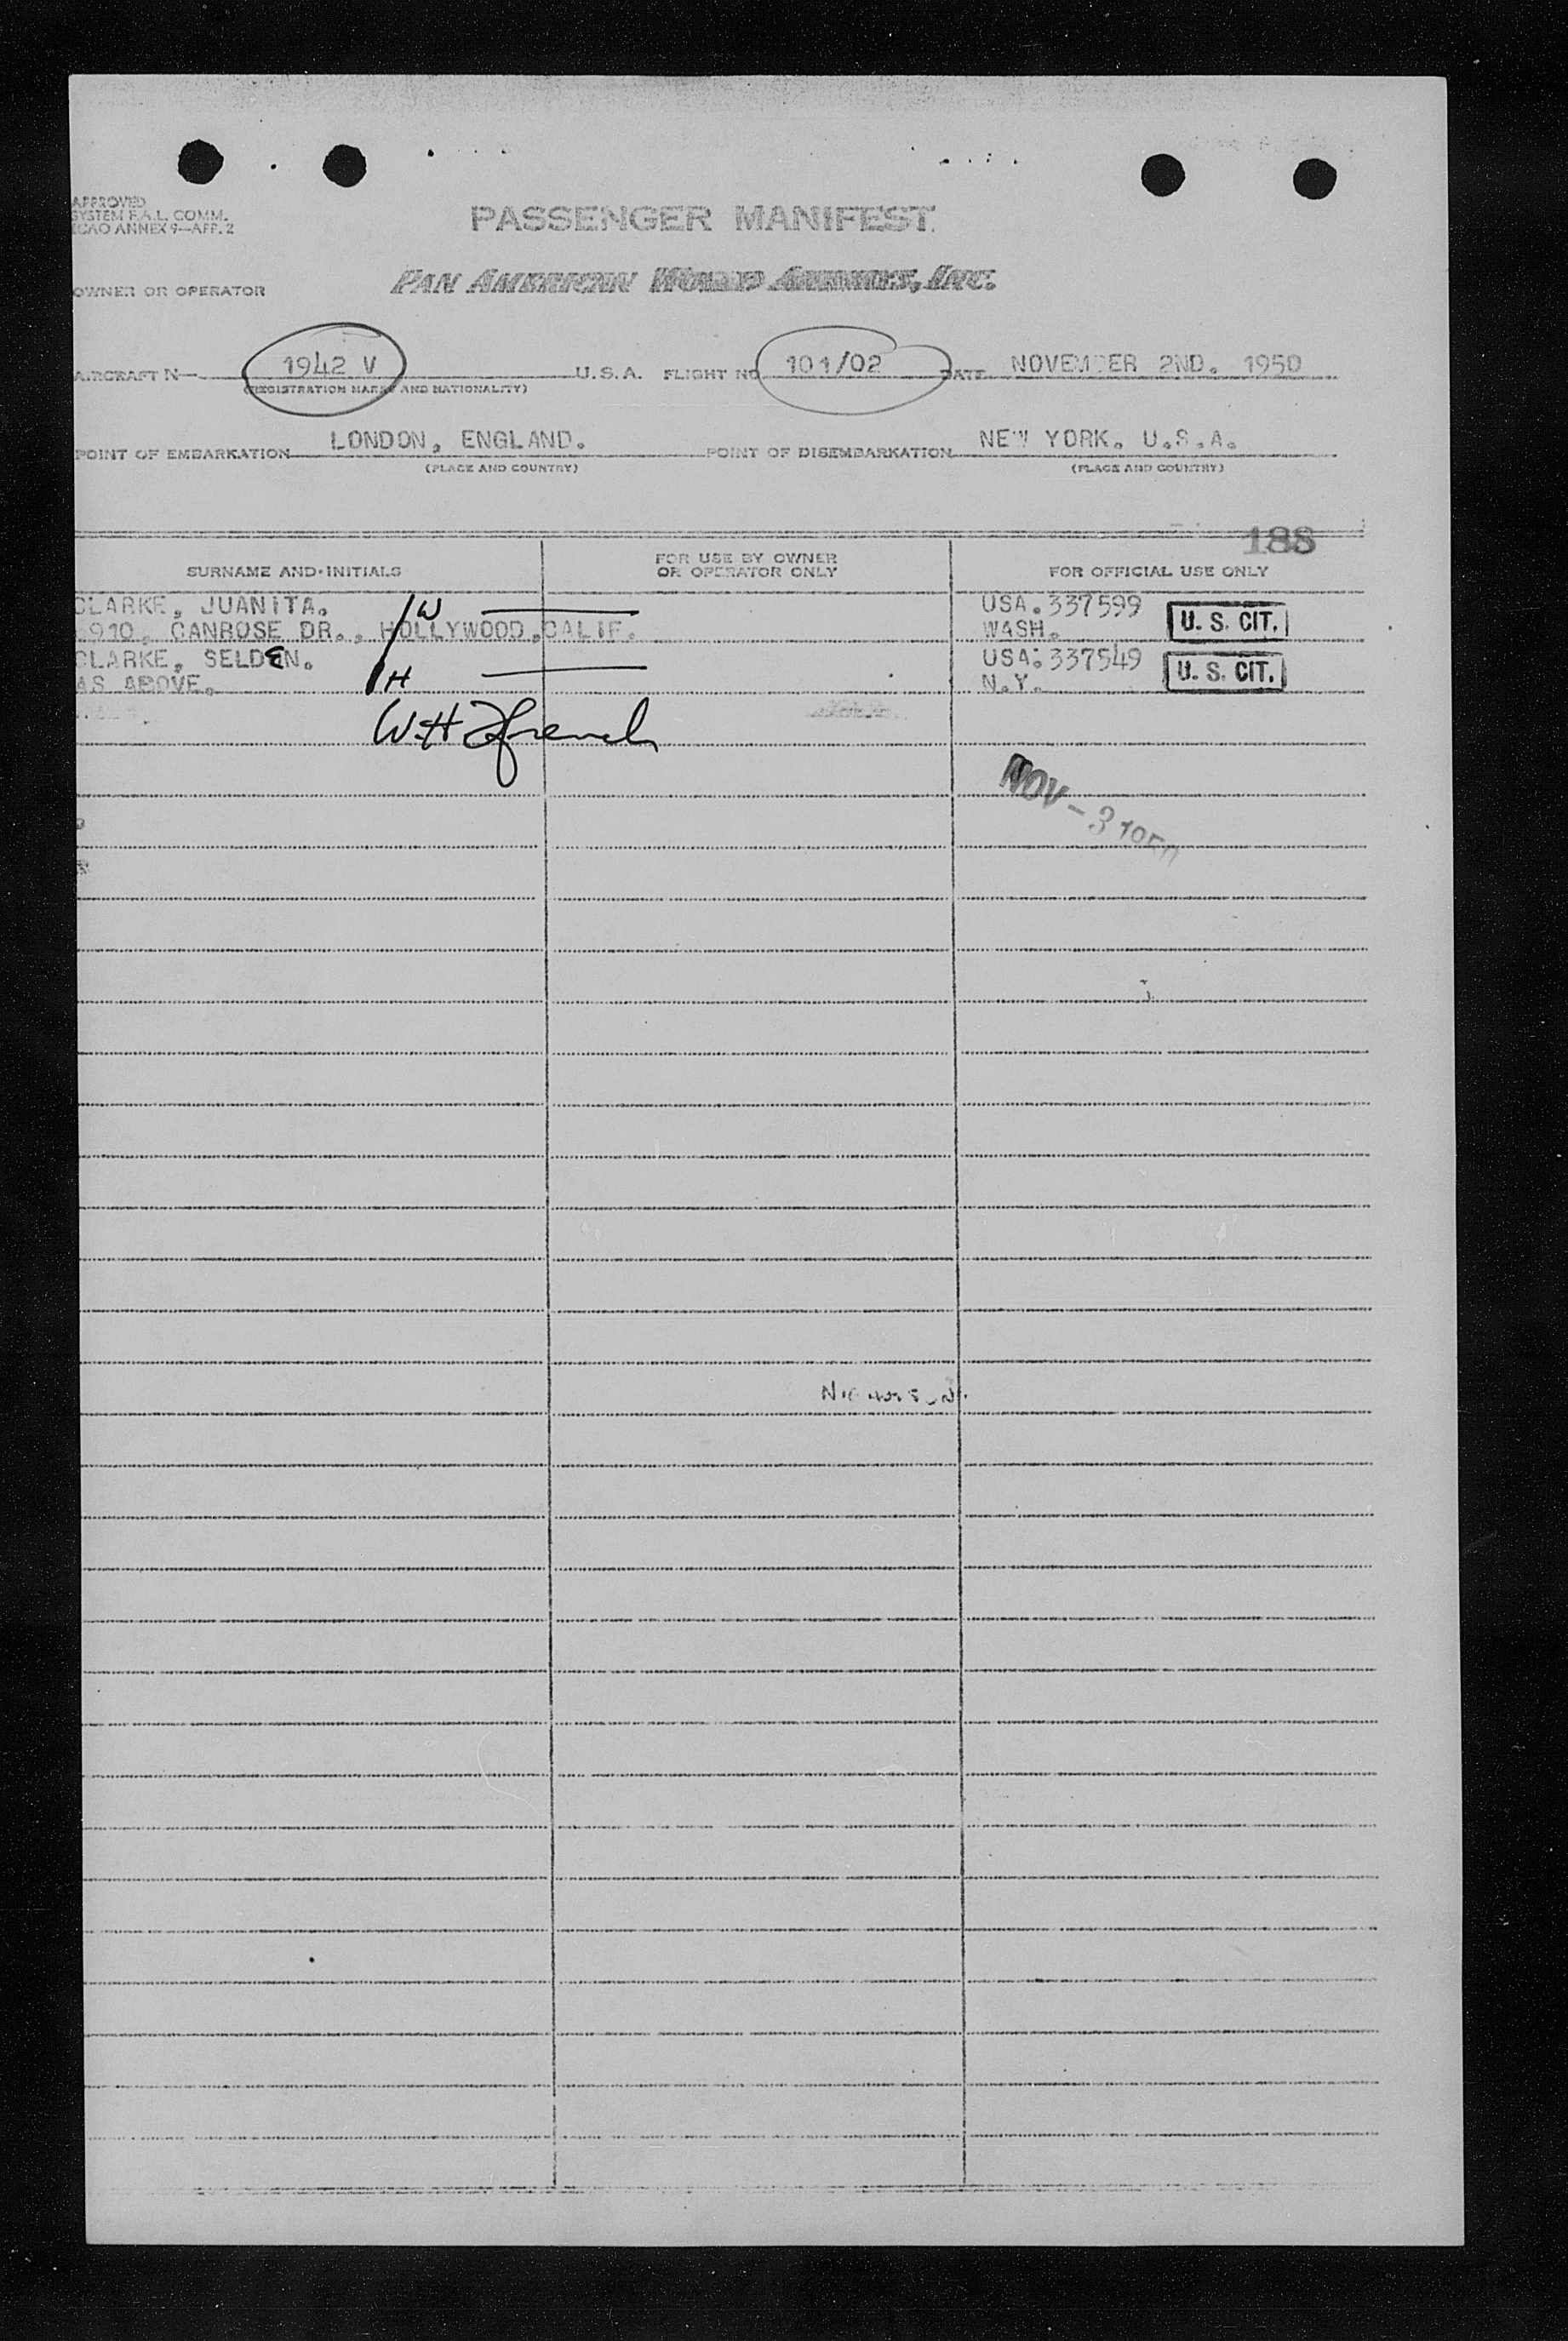 APPROVED
SYSTEM F.A.L. COMM.
ICAO ANNEX 9—APP. 2
PASSENGER MANIFEST
OWNER OR OPERATOR
PAN AMERICAN WORLD AIRWAYS, INC.
AIRCRAFT N— 1942 V U.S.A. FLIGHT NO 101/02 DATE NOVEMBER 2ND. 1950
(REGISTRATION MARKS AND NATIONALITY)
POINT OF EMBARKATION LONDON, ENGLAND. POINT OF DISEMBARKATION NEW YORK. U.S.A.
(PLACE AND COUNTRY) (PLACE AND COUNTRY)
188
SURNAME AND INITIALS FOR USE BY OWNER OR OPERATOR ONLY FOR OFFICIAL USE ONLY
CLARKE, JUANITA. W USA.337599 U. S. CIT.
910, CANROSE DR., HOLLYWOOD.CALIF. WASH.
CLARKE, SELDEN. USA.337549 U. S. CIT.
AS ABOVE. H N.Y.
W.H. French
NOV - 3 1950